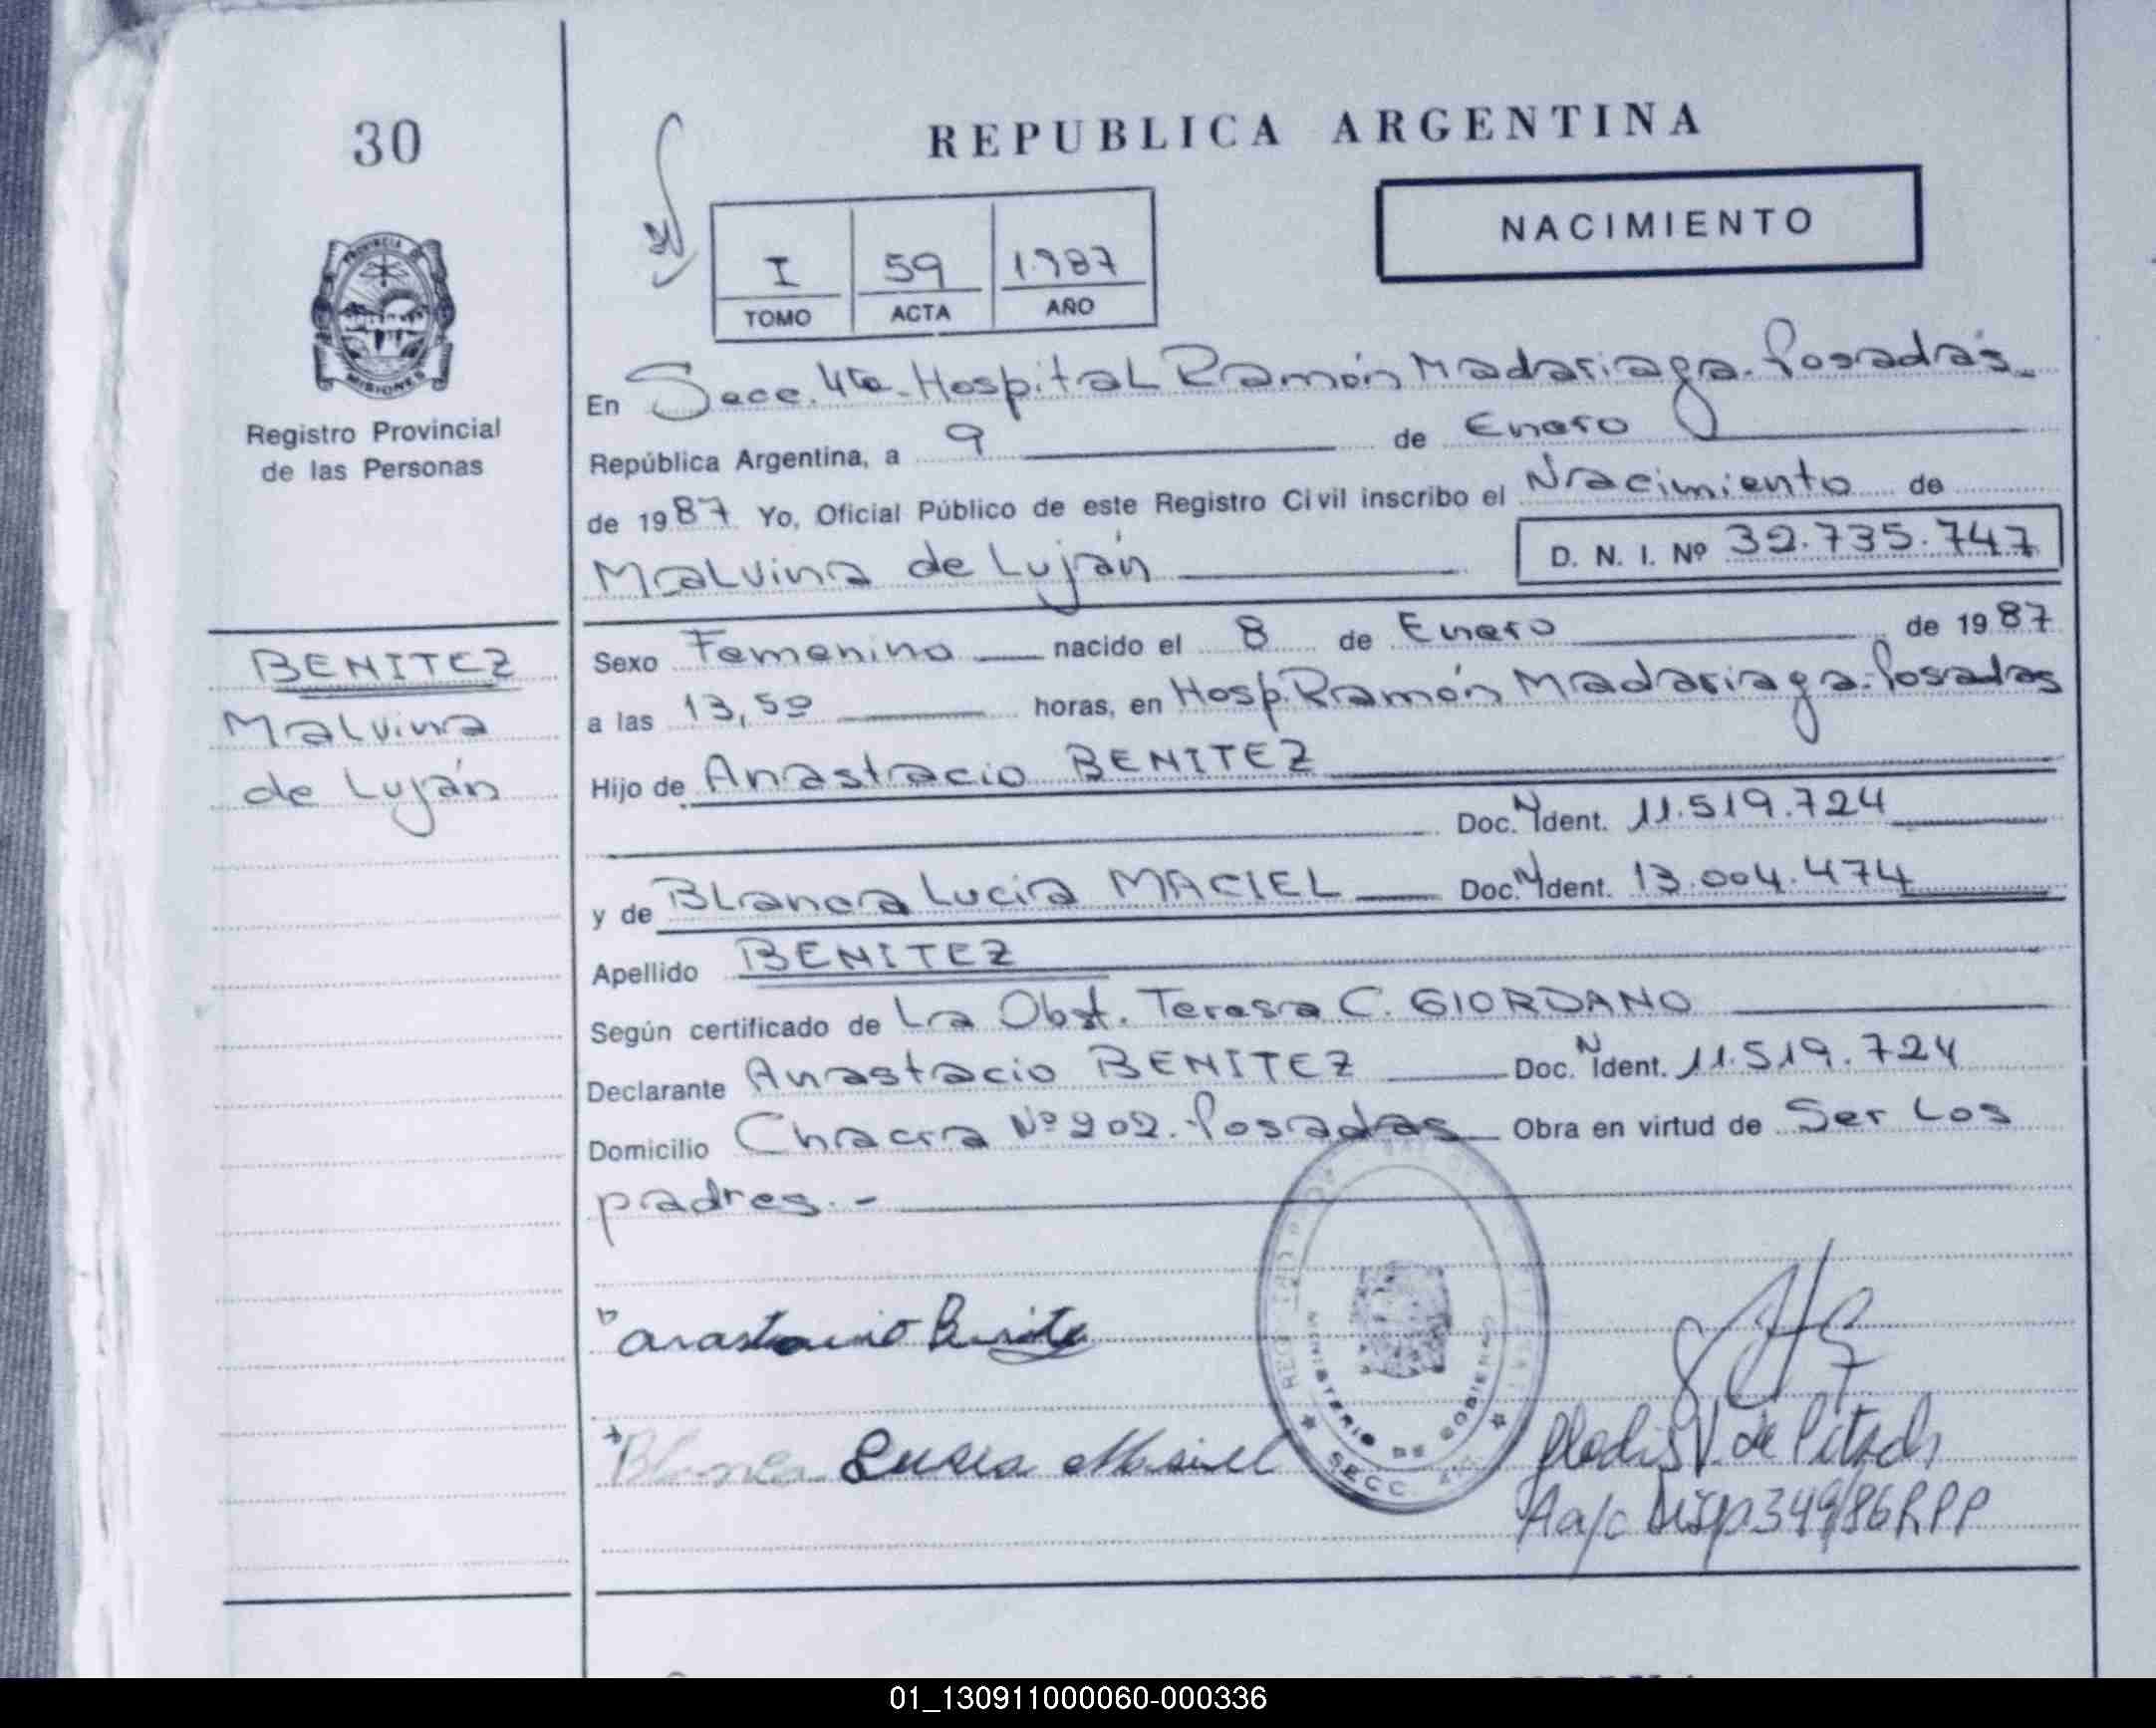 30
REPUBLICA ARGENTINA
NACIMIENTO
I 59 1.987
TOMO ACTA AÑO
PROVINCIA DE
MISIONES
Registro Provincial
de las Personas
En Secc. 4ta. Hospital Ramón Madariaga. Posadas.
República Argentina, a 9 de Enero
de 1987 Yo, Oficial Público de este Registro Civil inscribo el Nacimiento de
Malvina de Luján D. N. I. Nº 32.735.747
BENITEZ
Malvina
de Luján
Sexo Femenino nacido el 8 de Enero de 1987
a las 13,50 horas, en Hosp. Ramón Madariaga. Posadas
Hijo de Anastacio BENITEZ
Doc. N Ident. 11.519.724
y de Blanca Lucia MACIEL Doc. N Ident. 13.004.474
Apellido BENITEZ
Según certificado de La Obst. Teresa C. GIORDANO
Declarante Anastacio BENITEZ Doc. N Ident. 11.519.724
Domicilio Chacra Nº 202. Posadas Obra en virtud de Ser Los
padres.-
MINISTERIO DE GOBIERNO
SECC.
Blanca Lucia Maciel
Disp 349/86 RPP
01_130911000060-000336